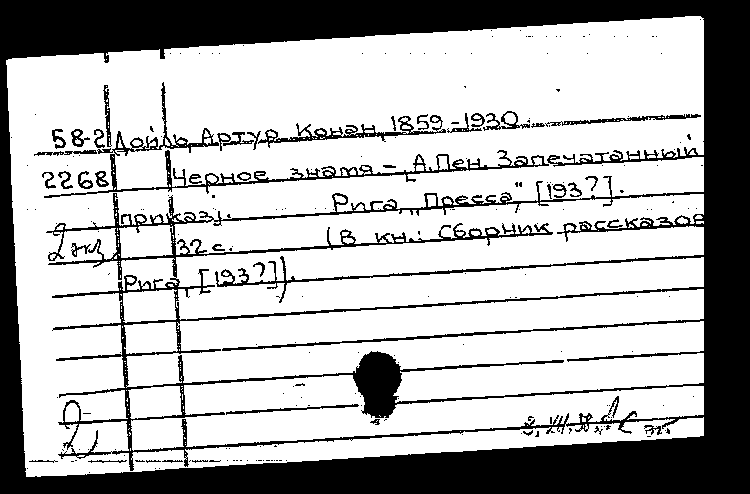 58-2 Дойль, Артур Конан, 1859-1930.
2268 Черное знамя. - [А. Пен. Запечатанный
приказ]. Рига, "Пресса", [193?].
2 экз. 32 с. (В кн.: Сборник рассказов
Рига, [193?]).
2